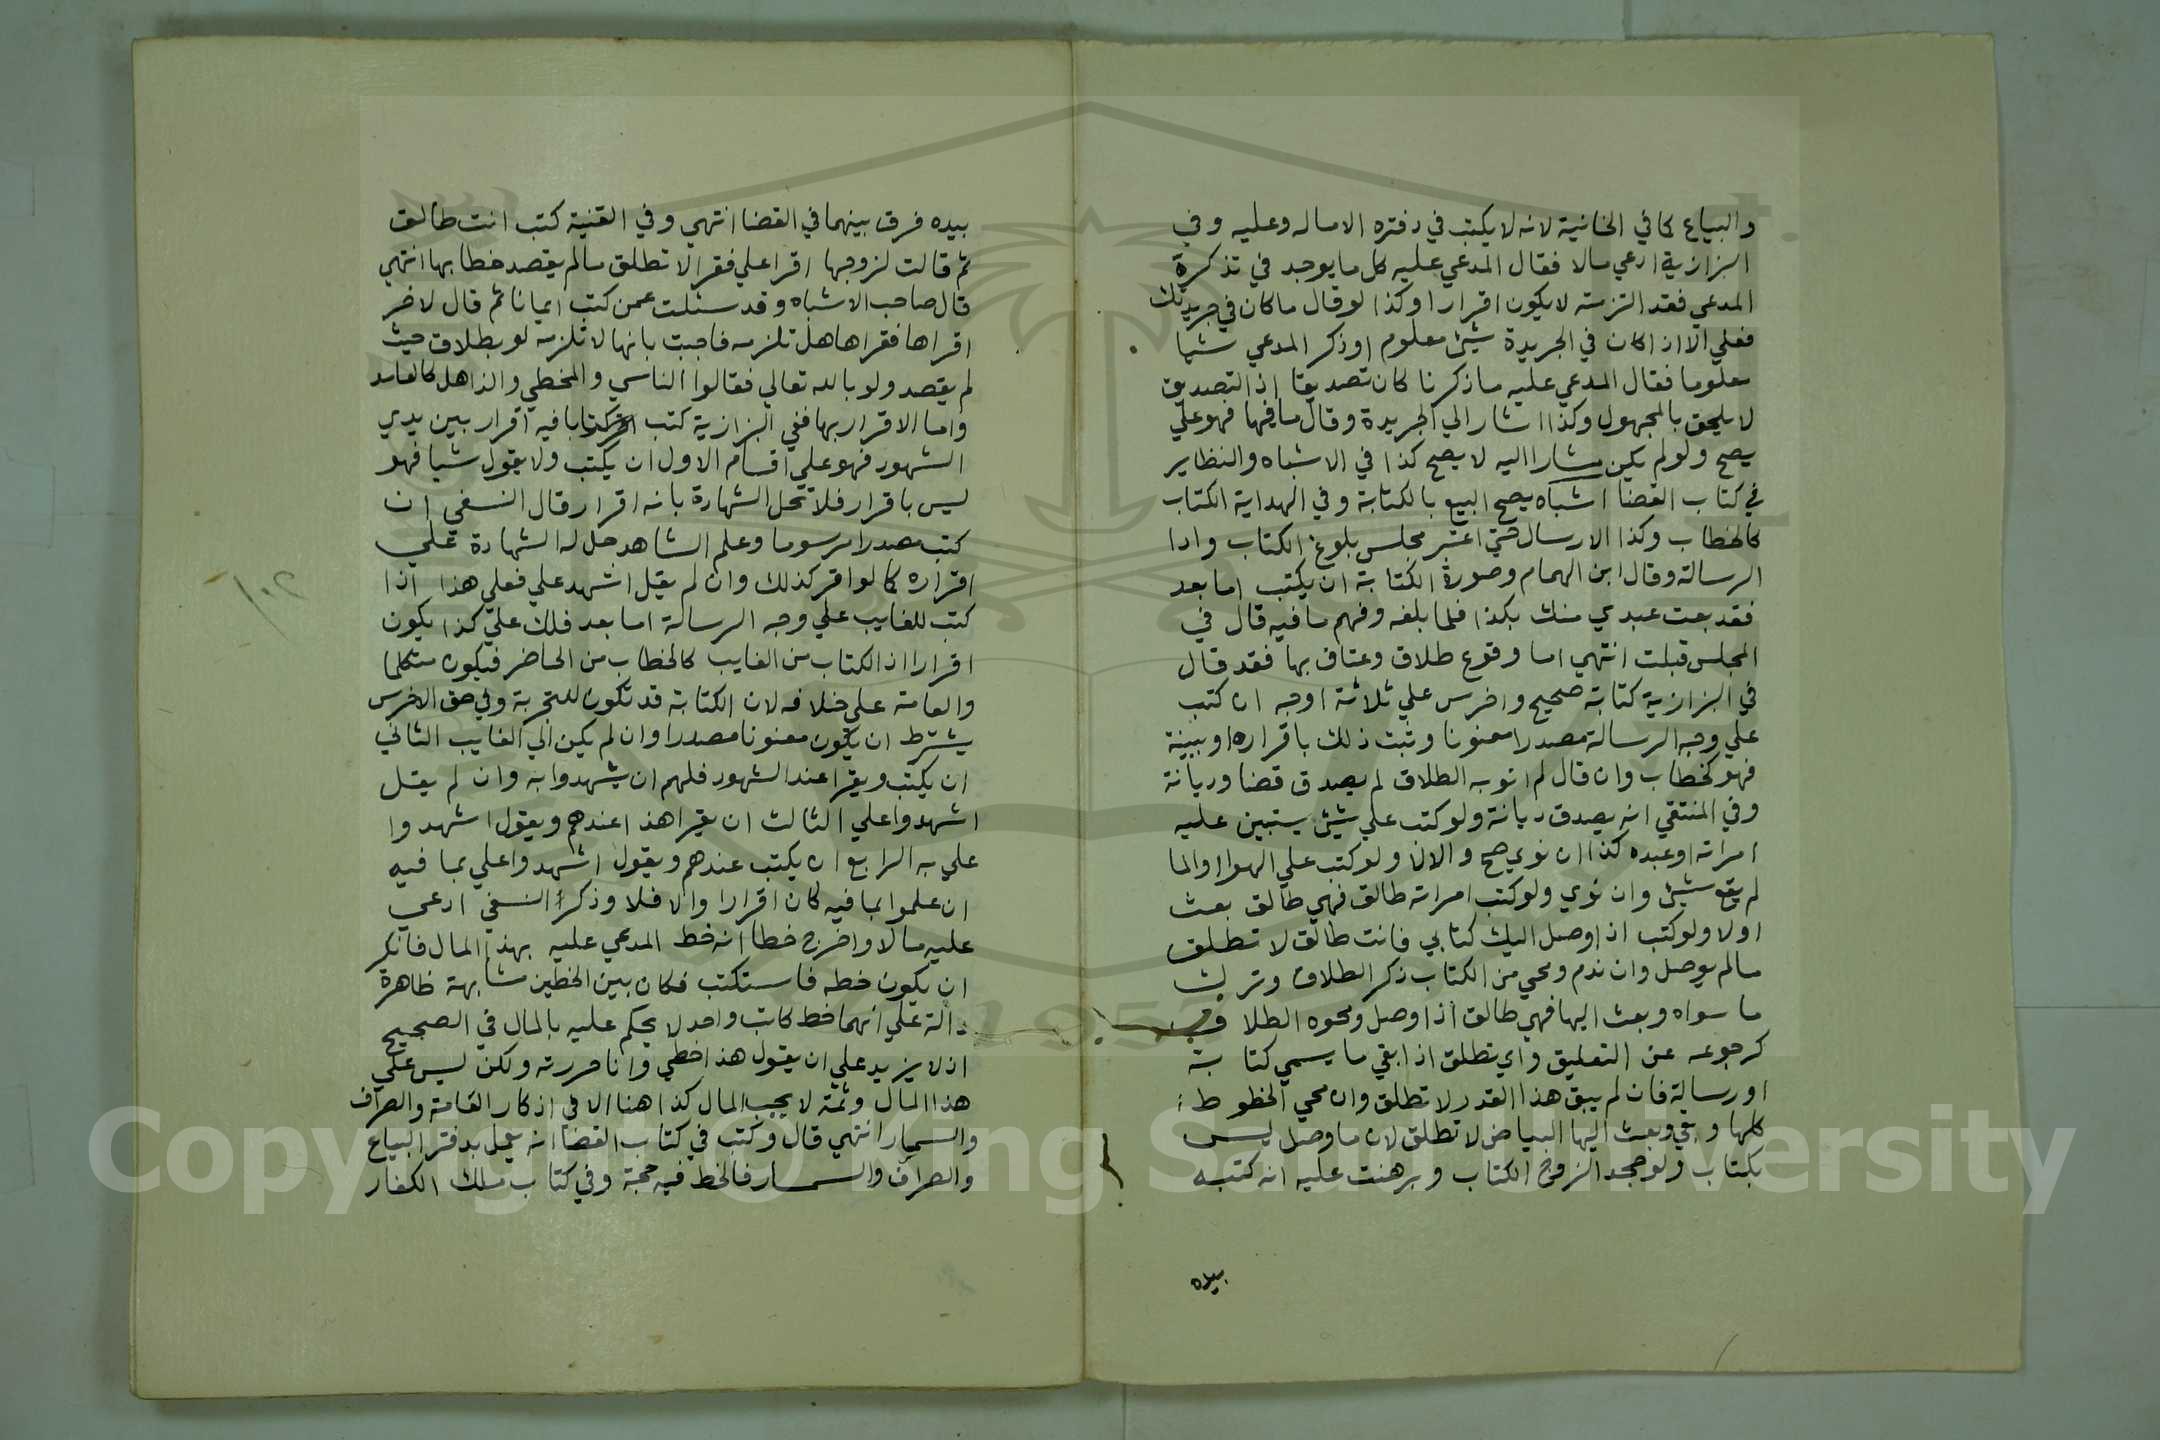 والبياع كما في الخانية لانه لا يكتب في دفتره الا ماله وعليه وفي
البزازية ادعي مالا فقال المدعي عليه كل ما يوجد في تذكرة
المدعي فقد التزمته لا يكون اقرارا وكذا لو قال ما كان في جريدتك
فعلي الا اذا كان في الجريدة شيئ معلوم او ذكر المدعي شيا
معلوما فقال المدعي عليه ما ذكرنا كان تصديقا اذ التصديق
لا يلحق بالمجهول وكذا اشار الي الجريدة وقال ما فيها فهو علي
يصح ولو لم يكن مشارا اليه لا يصح كذا في الاشباه والنظاير
في كتاب القضا اشباه يصح البيع بالكتابة وفي الهداية الكتاب
كالخطاب وكذا الارسال حتي اعتبر مجلس بلوغ الكتاب وادا
الرسالة وقال ابن الهمام وصورة الكتابة ان يكتب اما بعد
فقد بعت عبدي منك بكذا فلما بلغه وفهم ما فيه قال في
المجلس قبلت انتهي اما وقوع طلاق وعتاق بها فقد قال
في البزازية كتابة صحيح واخرس علي ثلاثة اوجه ان كتب
علي وجه الرسالة مصدرا معنونا وثبت ذلك باقراره او ببينة
فهو كخطاب وان قال لم انو به الطلاق لم يصدق قضا وديانة
وفي المنتقي انه يصدق ديانة ولو كتب علي شيئ يستبين عليه
امراته او عبده كذا ان نوي صح والا لا ولو كتب علي الهوا او الما
لم يقع شيئ وان نوي ولو كتب امراته طالق فهي طالق بعث
اولا ولو كتب اذا وصل اليك كتابي فانت طالق لا تطلق
ما لم يوصل وان ندم ومحي من الكتاب ذكر الطلاق وترك
ما سواه وبعث اليها فهي طالق اذا وصل ومحوه الطلاق
كرجوعه عن التعليق واي تطلق اذا بقي ما يسمي كتابة
او رسالة فان لم يبق هذا القدر لا تطلق وان محي الخطوط
كلها وبقي وبعث اليها البياض لا تطلق لان ما وصل ليس
بكتاب ولو جحد الزوج الكتاب وبرهنت عليه انه كتبه
بيده
بيده فرق بينهما في القضا انتهي وفي القنية كتب انت طالق
ثم قالت لزوجها اقرا علي فقرا لا تطلق ما لم يقصد خطابها انتهي
قال صاحب الاشباه وقد سئلت عمن كتب ايمانا ثم قال لاخر
اقراها فقراها هل تلزمه فاجبت بانها لا تلزمه لو بطلاق حيث
لم يقصد ولو بالله تعالي فقالوا الناسي والمخطي والذاهل كالعامد
واما الاقرار بها ففي البزازية كتب كتابا فيه اقرار بين يدي
الشهور فهو علي اقسام الاول ان يكتب ولا يقول شيا فهو
ليس باقرار فلا تحل الشهادة بانه اقرار قال النسفي ان
كتب مصدرا مرسوما وعلم الشاهد حل له الشهادة علي
اقراره كما لو اقر كذلك وان لم يقل اشهد علي فعلي هذا اذا
كتب للغايب علي وجه الرسالة اما بعد فلك علي كذا يكون
اقرارا اذ الكتاب من الغايب كالخطاب من الحاضر فيكون متكلما
والعامة علي خلافه لان الكتابة قد تكون للتجربة وفي حق الاخرس
يشترط ان يكون معنونا مصدرا وان لم يكن الي الغايب الثاني
ان يكتب ويقرا عند الشهود فلهم ان يشهدوا به وان لم يقل
اشهدوا علي الثالث ان يقرا هذا عندهم ويقول اشهدوا
علي به الرابع ان يكتب عندهم ويقول اشهدوا علي بما فيه
ان علموا بما فيه كان اقرارا والا فلا وذكر النسفي ادعي
عليه مالا واخرج خطا انه خط المدعي عليه بهذا المال فانكر
ان يكون خطه فاستكتب فكان بين الخطين مشابهة ظاهرة
دالة علي انهما خط كاتب واحد لا يحكم عليه بالمال في الصحيح
اذ لا يزيد علي ان يقول هذا خطي وانا حررته ولكن ليس علي
هذا المال وثمة لا يجب المال كذا هنا الا في اذكار القامة والصراف
والسمسار انتهي قال وكتب في كتاب القضا انه يعمل بدفتر البياع
والصراف والسمسار فالخط فيه حجة وفي كتاب ملك الكفار
١٠٢
Copyright © King Saud University
1957